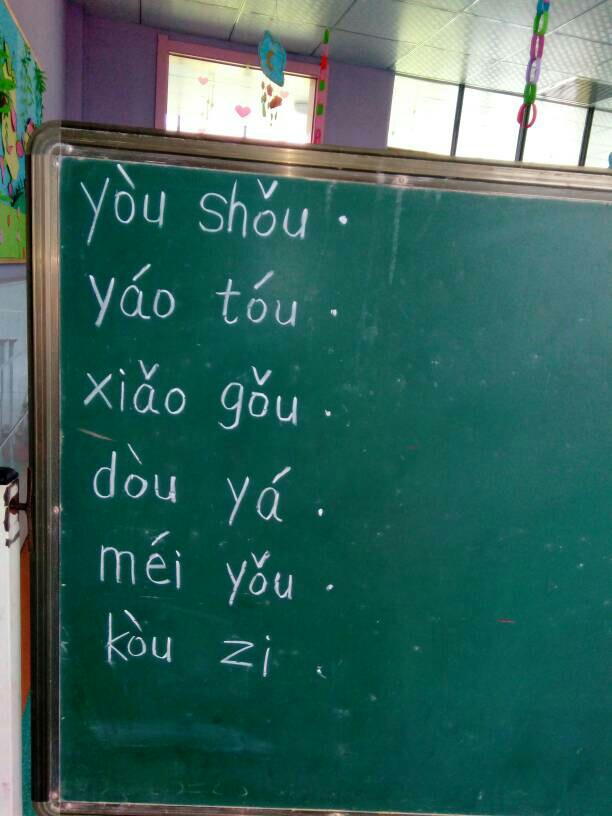 yòu shǒu .
yáo tóu .
xiǎo gǒu .
dòu yá .
méi yǒu .
kòu zi .